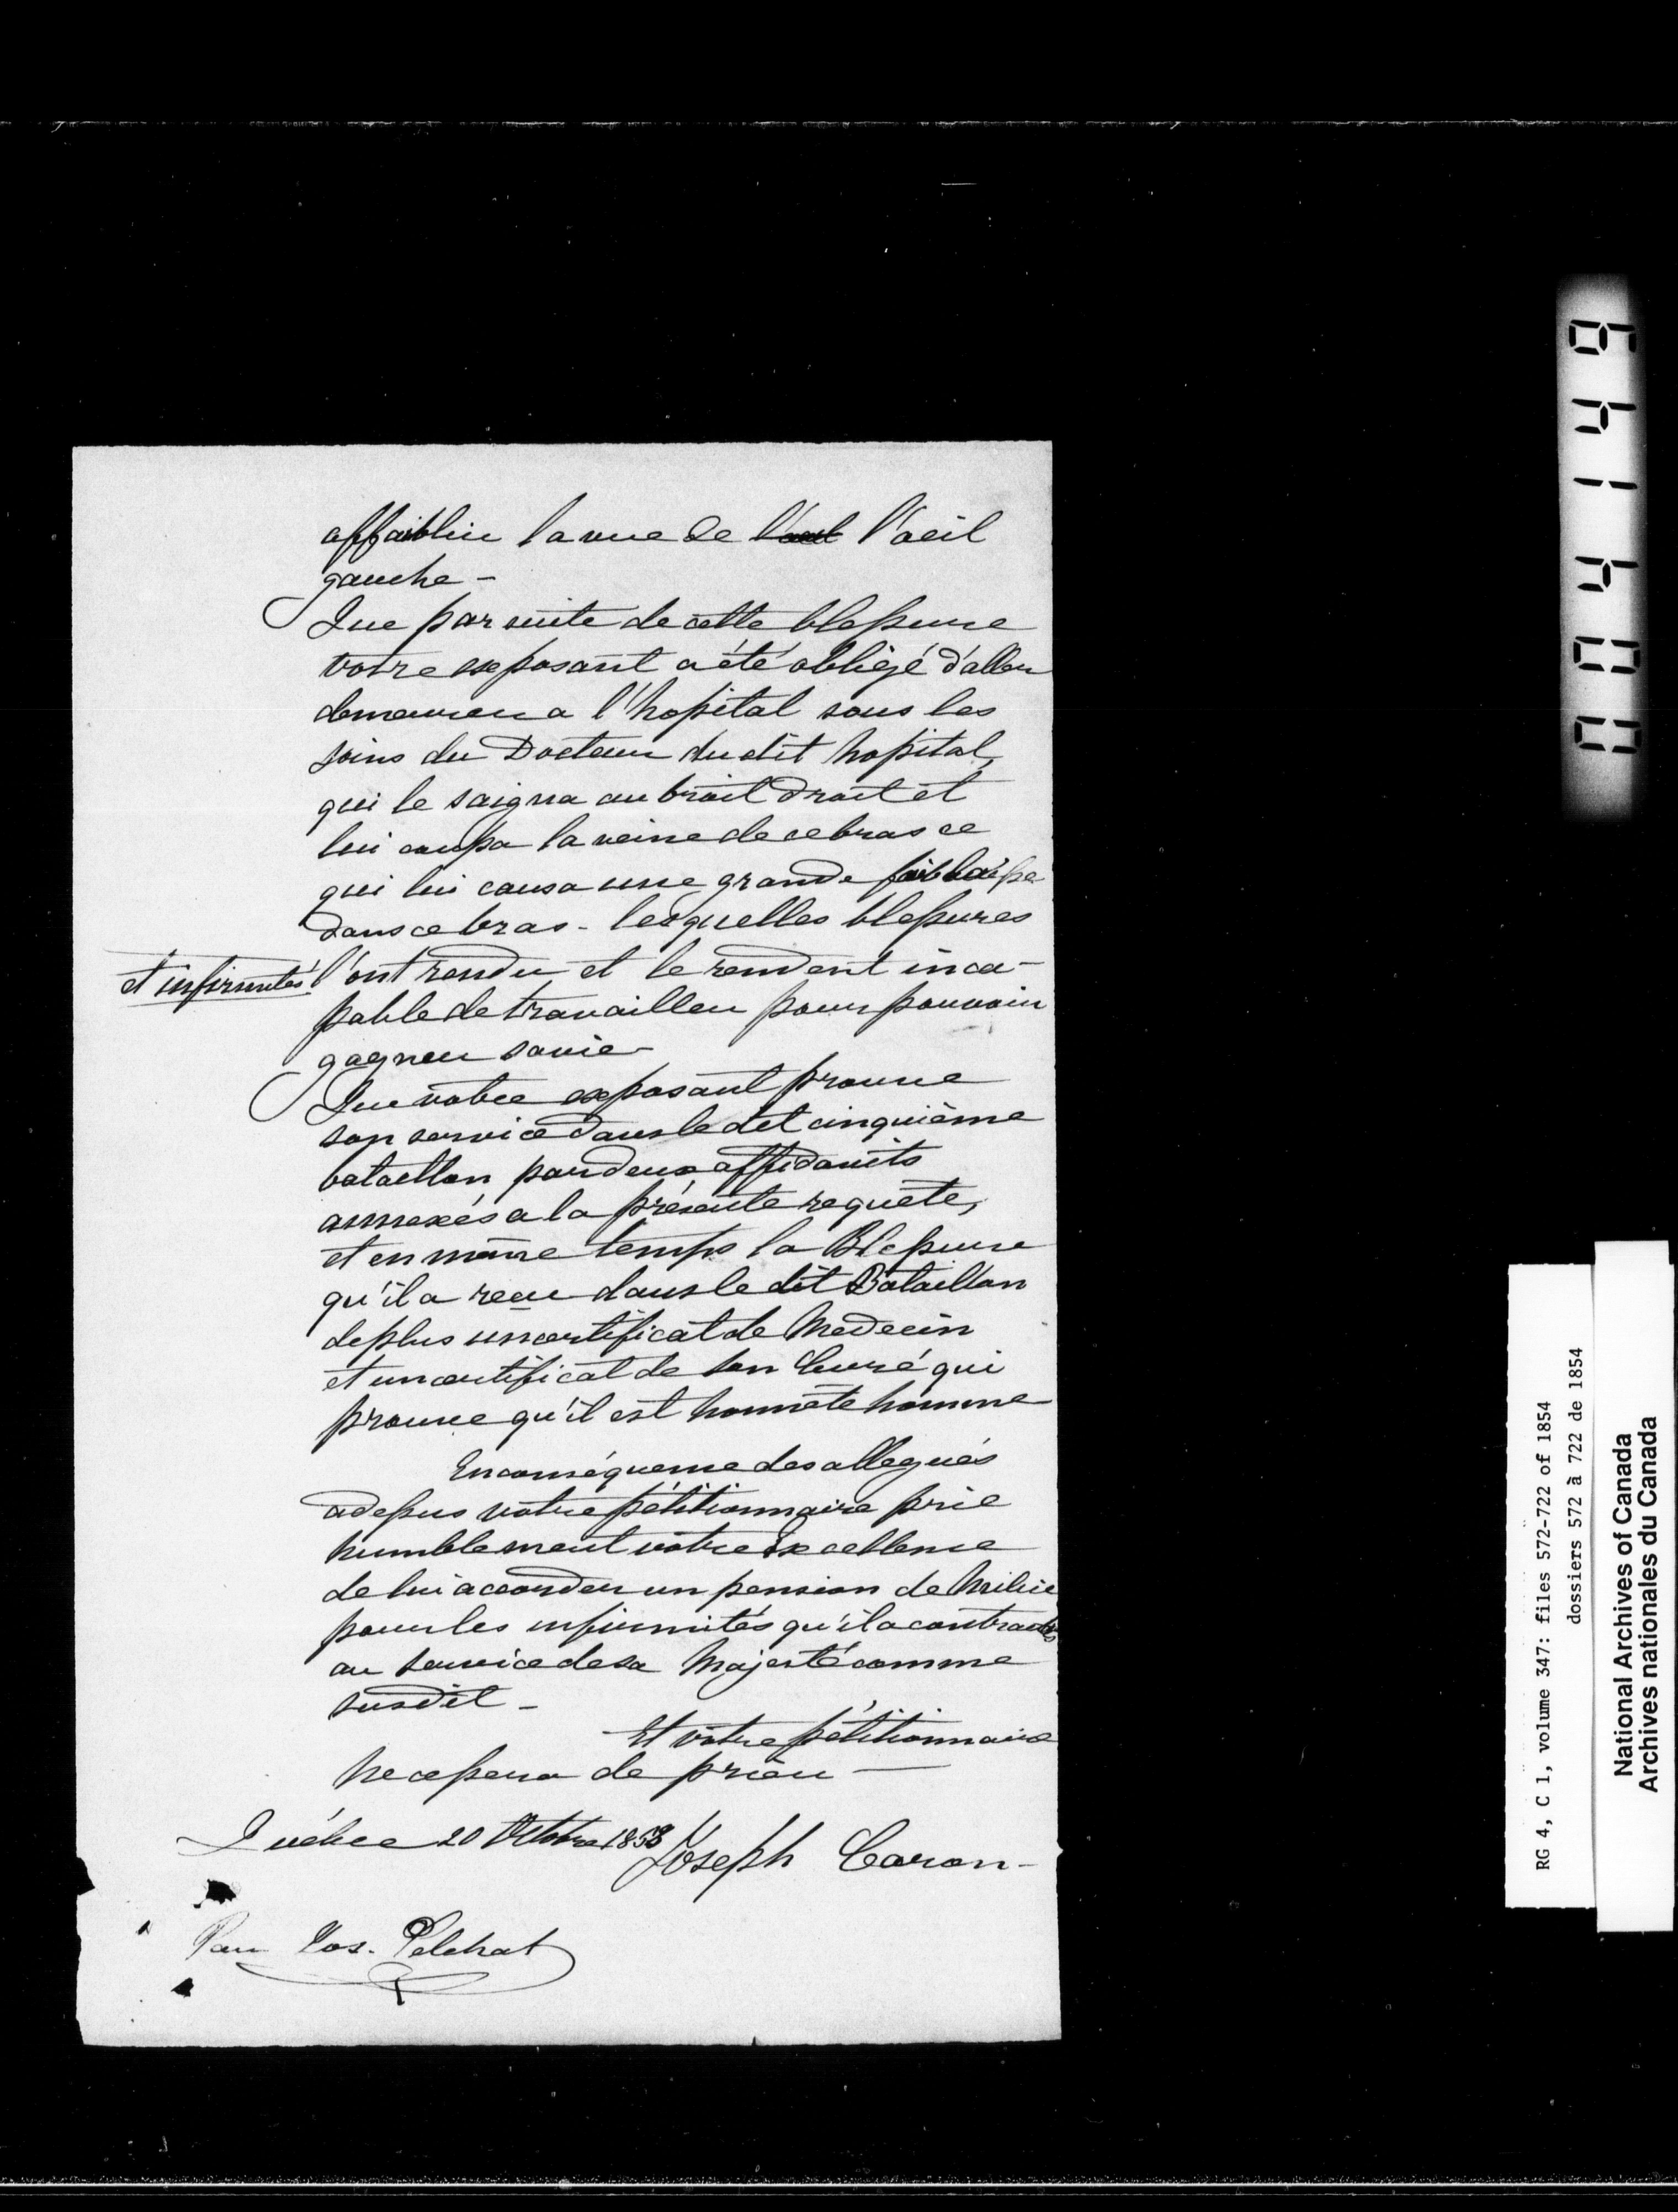 affaiblir la vue de l'oeil l'oeil
gauche -
Que par suite de cette blessure
votre exposant a été obligé d'aller
demeurer a l'hopital sous les
soins du Docteur du dit hopital,
qui le saigna au brait droit et
lui coupa la veine de ce bras ce
qui lui causa une grande faiblaisse
dans ce bras - lesquelles blessures
et infirmités l'ont rendu et le rendent inca-
pable de travailler pour pouvoir
gagner sa vie -
Que votre exposant prouve
son service dans le dit cinquième
bataillon par deux affidavits
annexés a la présente requête,
et en même temps la Blessure
qu'il a recu dans le dit Bataillon
de plus un certificat de Medecin
et un certificat de son Curé qui
prouve qu'il est honnête homme
En conséquence des allegués
adessus votre pétitionnaire prie
humblement votre Excellence
de lui accorder un pension de Milice
pour les infirmités qu'il a contractés
au service de sa Majesté comme
susdit -
Et votre pétitionnaire
Ne cessera de prier -
Québec 20 Octobre 1853 Joseph Caron -
Par Jos. Pelchat
641400
RG 4, C 1, volume 347: files 572-722 of 1854
dossiers 572 à 722 de 1854
National Archives of Canada
Archives nationales du Canada